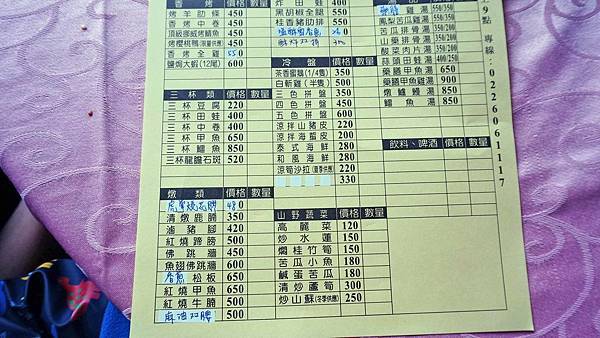 香烤 價格 數量
烤羊肋條 450
香烤中卷 450
頂級挪威烤鯖魚 350
烤櫻桃鴨
香烤全雞 550
鹽焗大蝦(12尾) 600
三杯類 價格 數量
三杯豆腐 220
三杯田蛙 400
三杯中卷 400
三杯甲魚 650
三杯鱷魚 850
三杯龍膽石斑 520
燉類 價格 數量
480
清燉鹿腩 350
滷豬腳 420
紅燒蹄膀 500
佛跳牆 450
魚翅佛跳牆 600
松板 650
紅燒甲魚 650
紅燒牛腩 500
麻油双腰 500
炸田蛙 400
黑胡椒全腿 550
桂香豬肋排 550
冷盤 價格 數量
茶香蜜鵝(1/4隻) 350
白斬雞(半隻) 500
三色拼盤 350
四色拼盤 450
五色拼盤 600
涼拌山豬皮 220
涼拌海蜇皮 200
泰式海鮮 280
和風海鮮 280
涼筍沙拉(夏季供應) 220
330
山野蔬菜 價格 數量
高麗菜 120
炒水蓮 150
燜桂竹筍 150
苦瓜小魚 180
鹹蛋苦瓜 180
清炒蘆筍 300
炒山蘇(冬季供應) 250
雞湯 550/350
鳳梨苦瓜雞湯 550/350
苦瓜排骨湯
山藥排骨湯
酸菜肉片湯
蒜頭田蛙湯
藥膳甲魚湯 650
藥膳全雞湯 900
燉鱸鰻湯 850
鱷魚湯 850
飲料、啤酒 價格 數量
9點 專線：0226061117